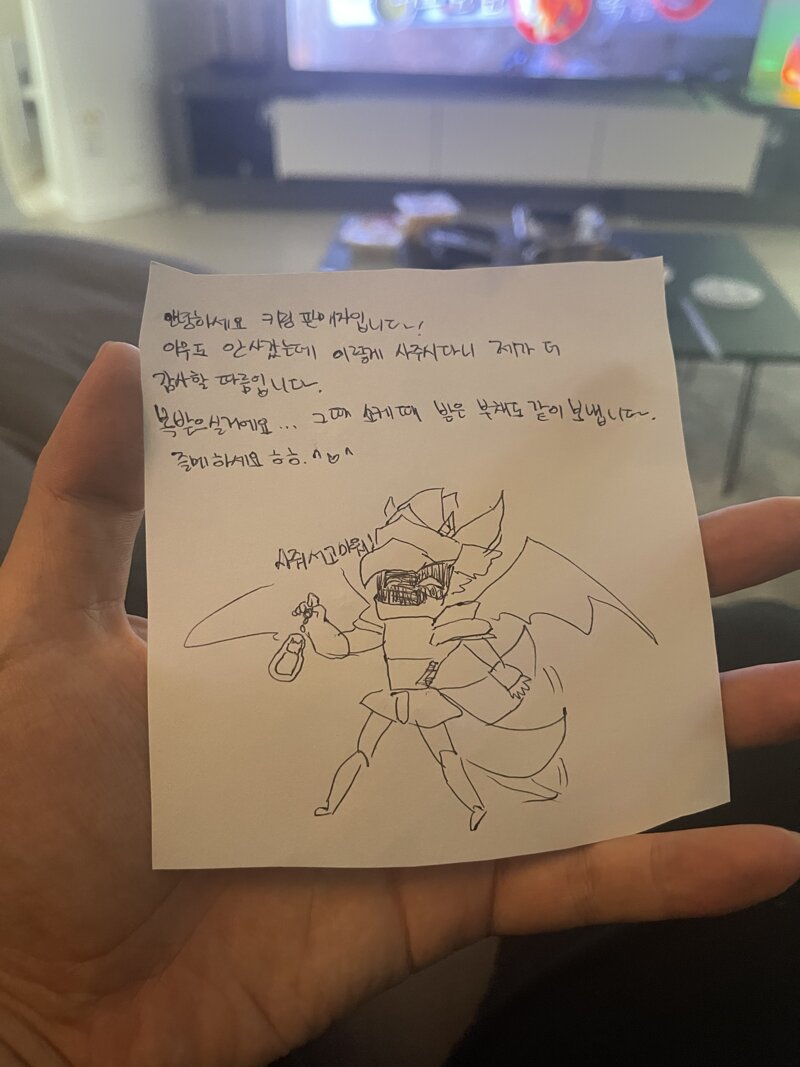 안녕하세요 키링 판매자입니다!
아무도 안사갔는데 이렇게 사주시다니 제가 더
감사할 따름입니다.
복받으실거에요... 그때 쇼케때 받은 부채도 같이 보냅니다.
즐메하세요 ㅎㅎ.^♡^
사줘서고마워!!